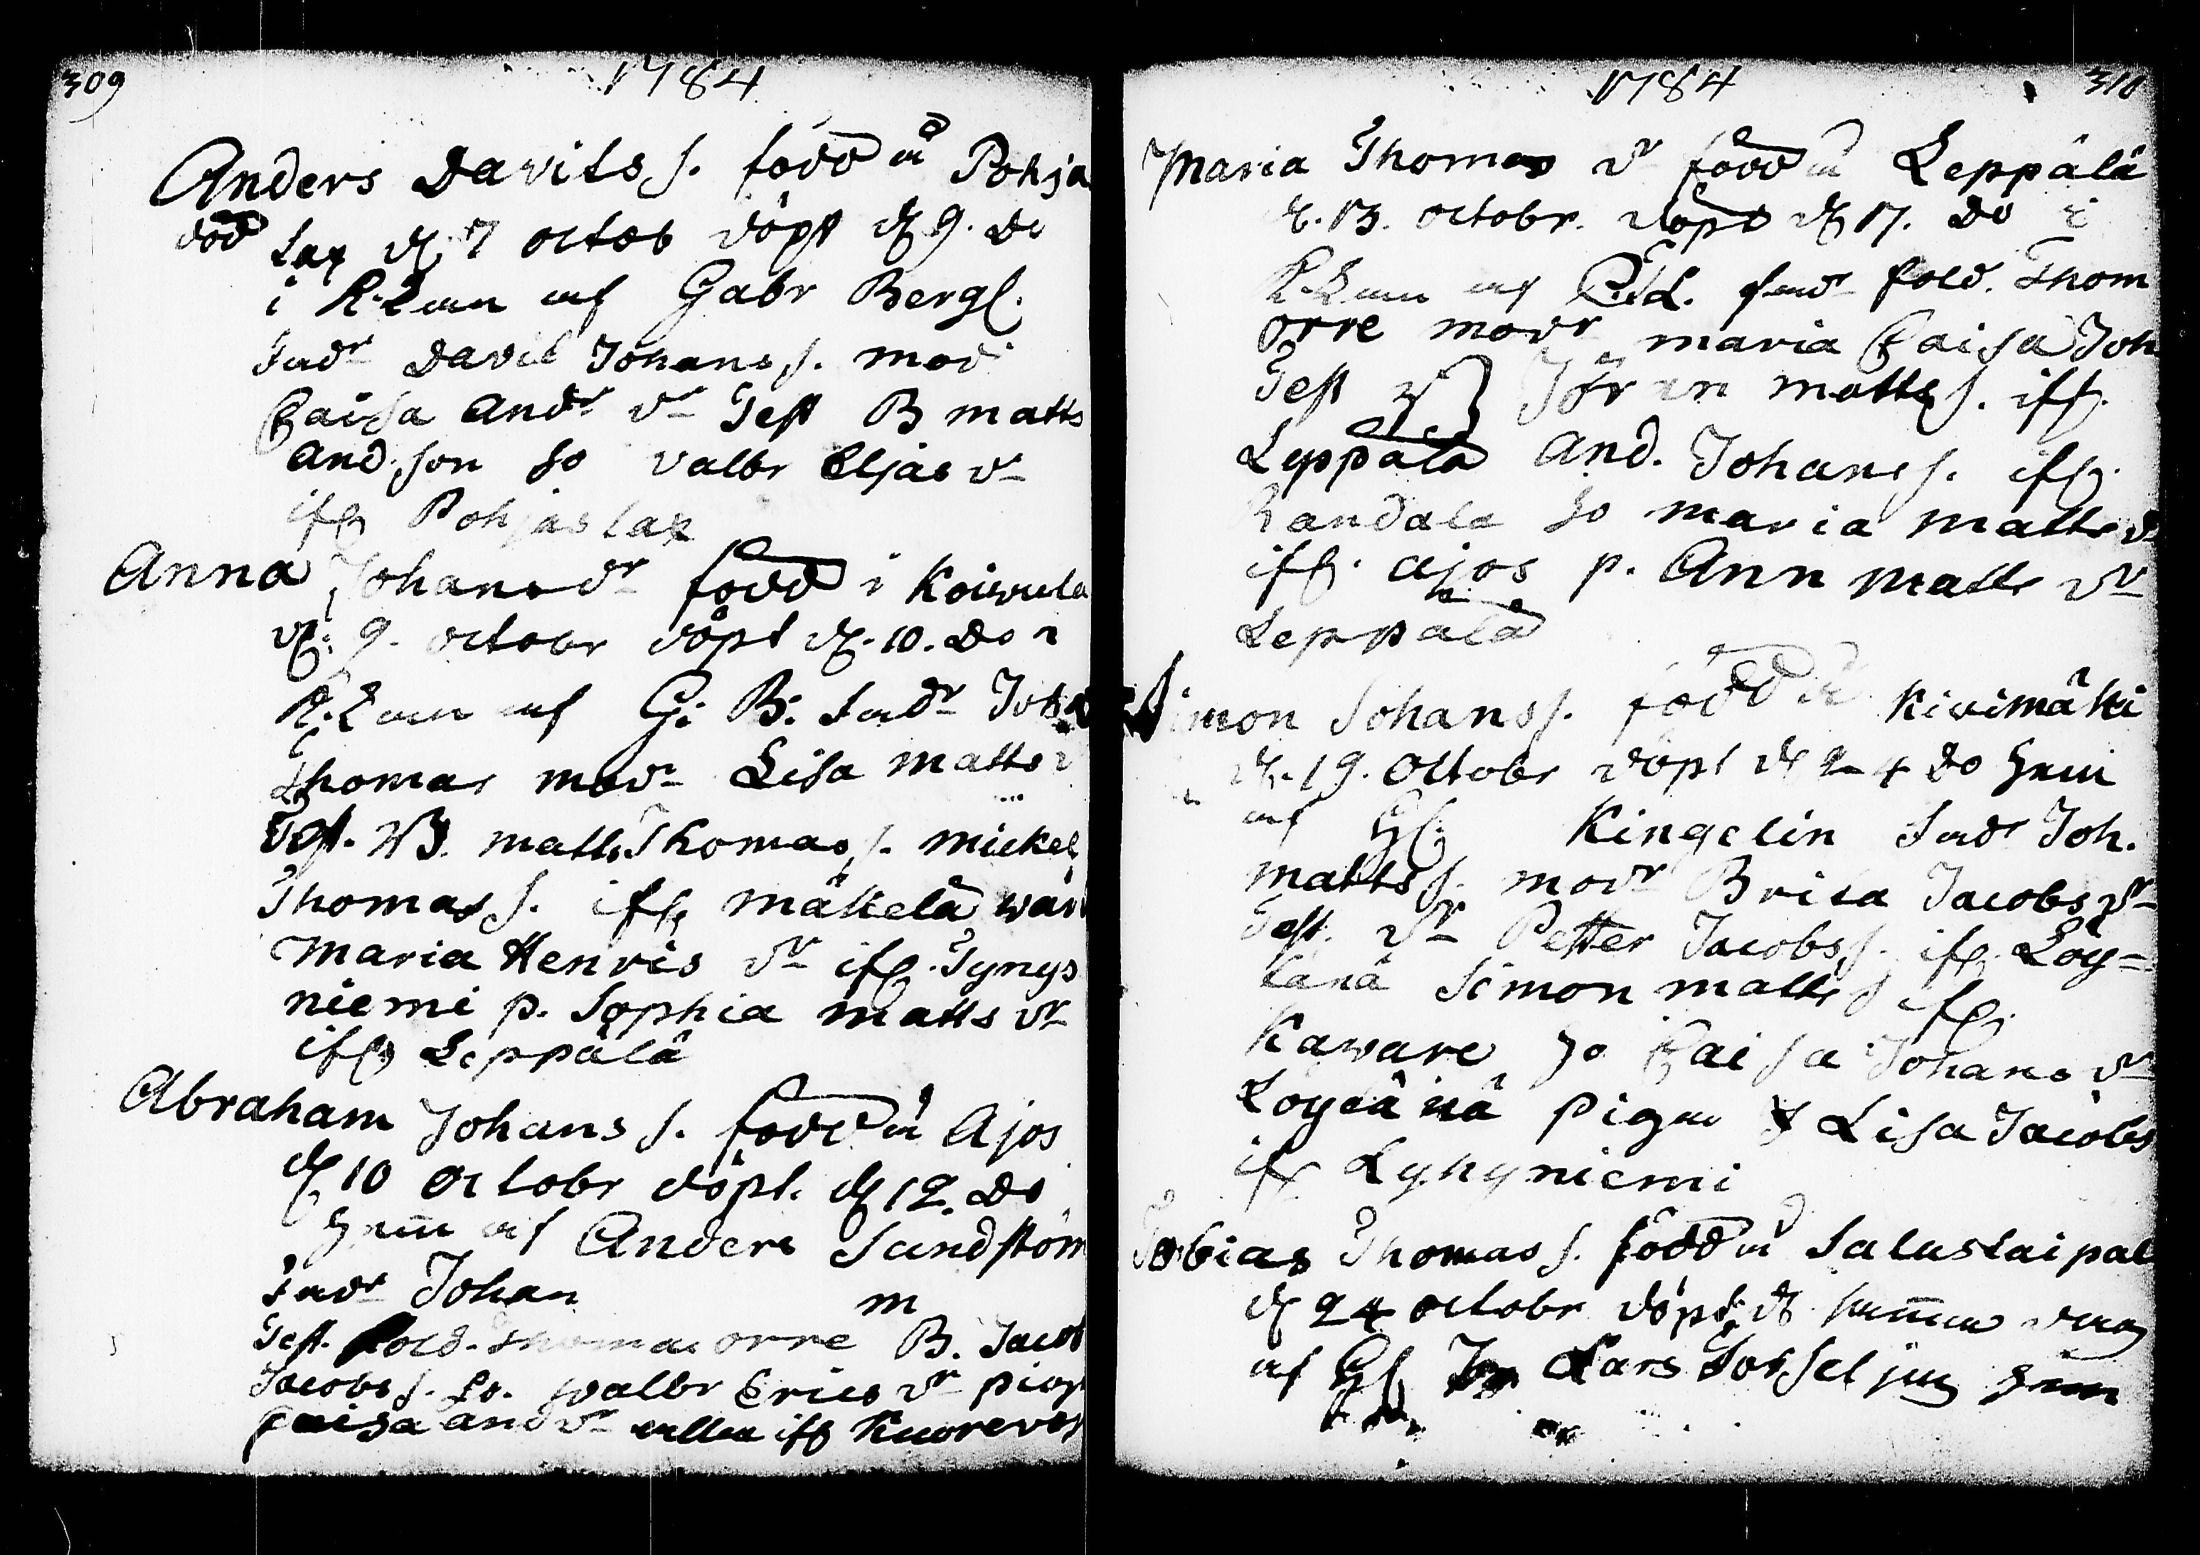 309
1784
Anders Davits s. född å Pohja
död lax d. 7 octob döpt d. 9. do
i K. Lan af Gabr Bergl.
Fadr David Johans s. mod
Caisa Andr dr Test B matts
And.son ho valbr Eljas dr
ifr Pohjaslax
Anna Johans dr född i Koivula
d. 9. octobr döpt d. 10. do i
K. Lan af G: B: Fadr Joha
Thomas modr Lisa matts
Test. matts Thomas s. mickel
Thomas s. ifr mäkelä
Maria Henris dr ifr. Tynys
niemi p. Sophia matts dr
ifr Leppälä
Abraham Johans s. född å Ajos
d. 10 octobr döpt. d. 12. do
hem af Anders Sundström
Fadr Johan m
Test. sold. Thomas orre B. Jacob
Jacobs s. ho. walbr Erics dr pig
Caisa and dr alla ifr Kuoreves
1784
310
Maria Thomas dr född å Leppälä
d. 13. octobr. döpt d. 17. do i
K. Lan af fadr sold. Thom
orre modr maria Caisa Joh
Test Jöran matts s. ifr.
Leppälä And. Johans s. ifr.
Randala ho maria matts d
ifr. ajos p. Ann matts dr
Leppälä
Simon Johans s. född å Kivimäki
d. 19. octobr döpt d. 24 do hem
af Kingelin Fadr Joh.
matts s. modr Brita Jacobs dr
Test. Petter Jacobs s. ifr Löy=
tänä Simon matts s ifr
Kaware ho Caisa Johans dr
Löytänä pigan Lisa Jacobs
ifr Lyhyniemi
Tobias Thomas s. född å Salustaipal
d. 24 octobr döpt d. samma dag
af Lars hem